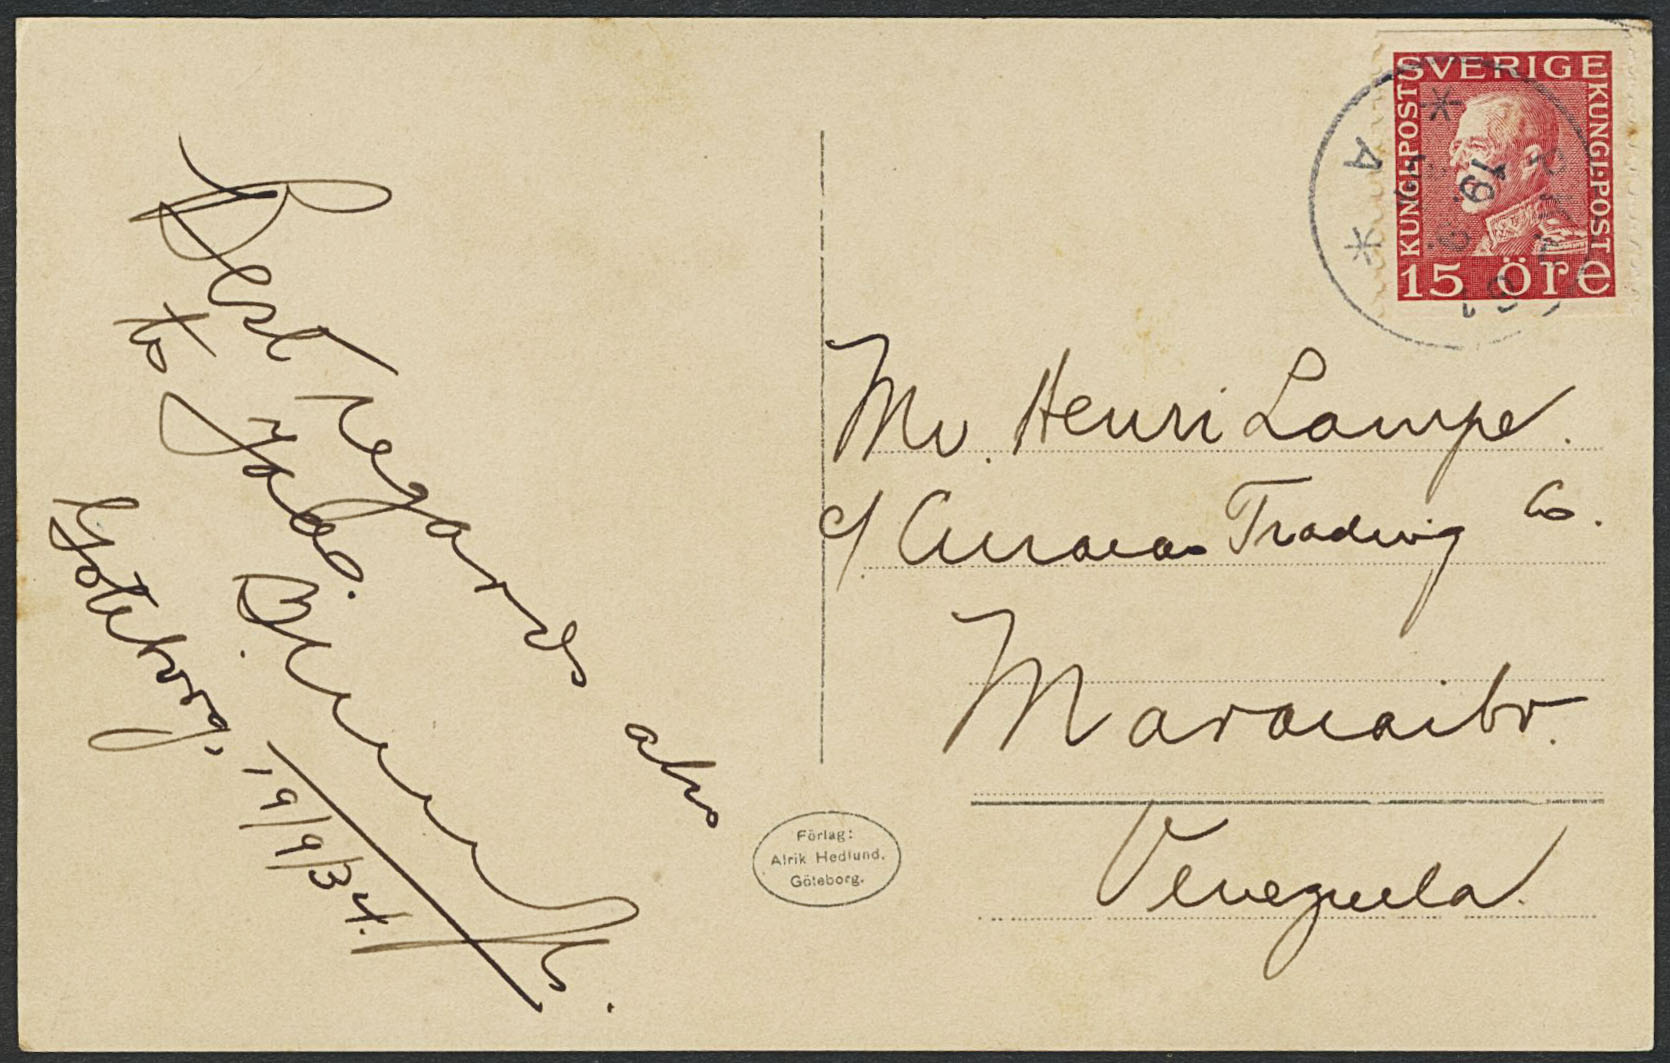 Best regards also
to
Göteborg, 19/9/34.
Förlag:
Alrik Hedlund.
Göteborg.
SVERIGE
KUNGL·POST
KUNGL·POST
15 öre
* A *
19
Mr. Henri Lampe.
c/ Curacao Trading Co.
Maracaibo.
Venezuela.